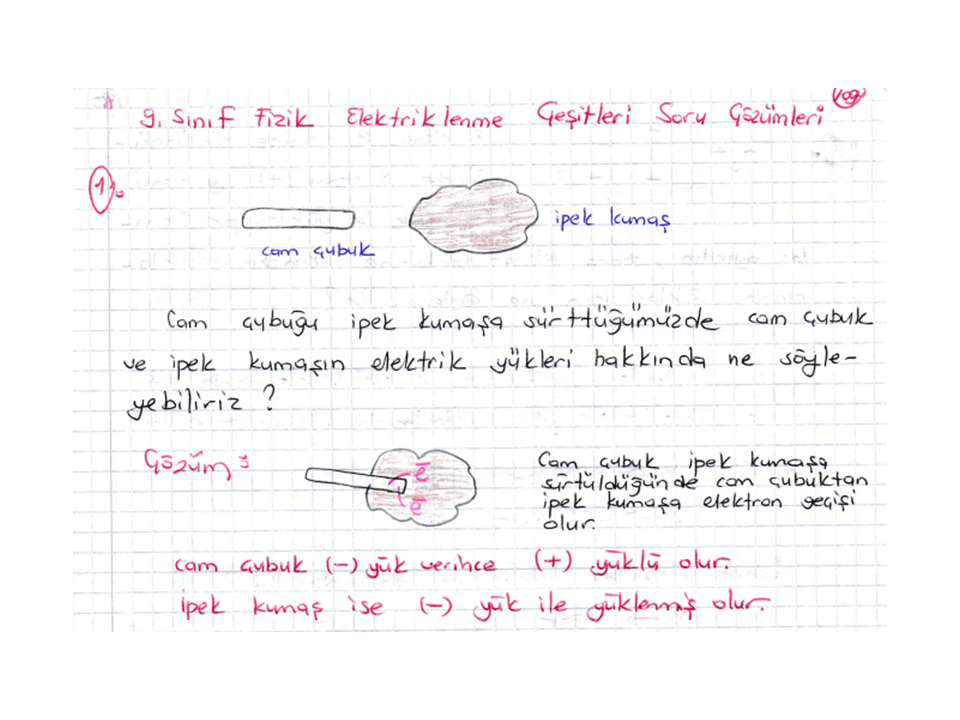 109
9. Sınıf Fizik Elektriklenme Çeşitleri Soru Çözümleri
1.
ipek kumaş
cam çubuk
Cam çubuğu ipek kumaşa sürttüğümüzde cam çubuk
ve ipek kumaşın elektrik yükleri hakkında ne söyle-
yebiliriz ?
Çözüm :
Cam çubuk ipek kumaşa
sürtüldüğünde cam çubuktan
ipek kumaşa elektron geçişi
olur.
ē
ē
cam çubuk (-) yük verince (+) yüklü olur.
ipek kumaş ise (-) yük ile yüklenmiş olur.